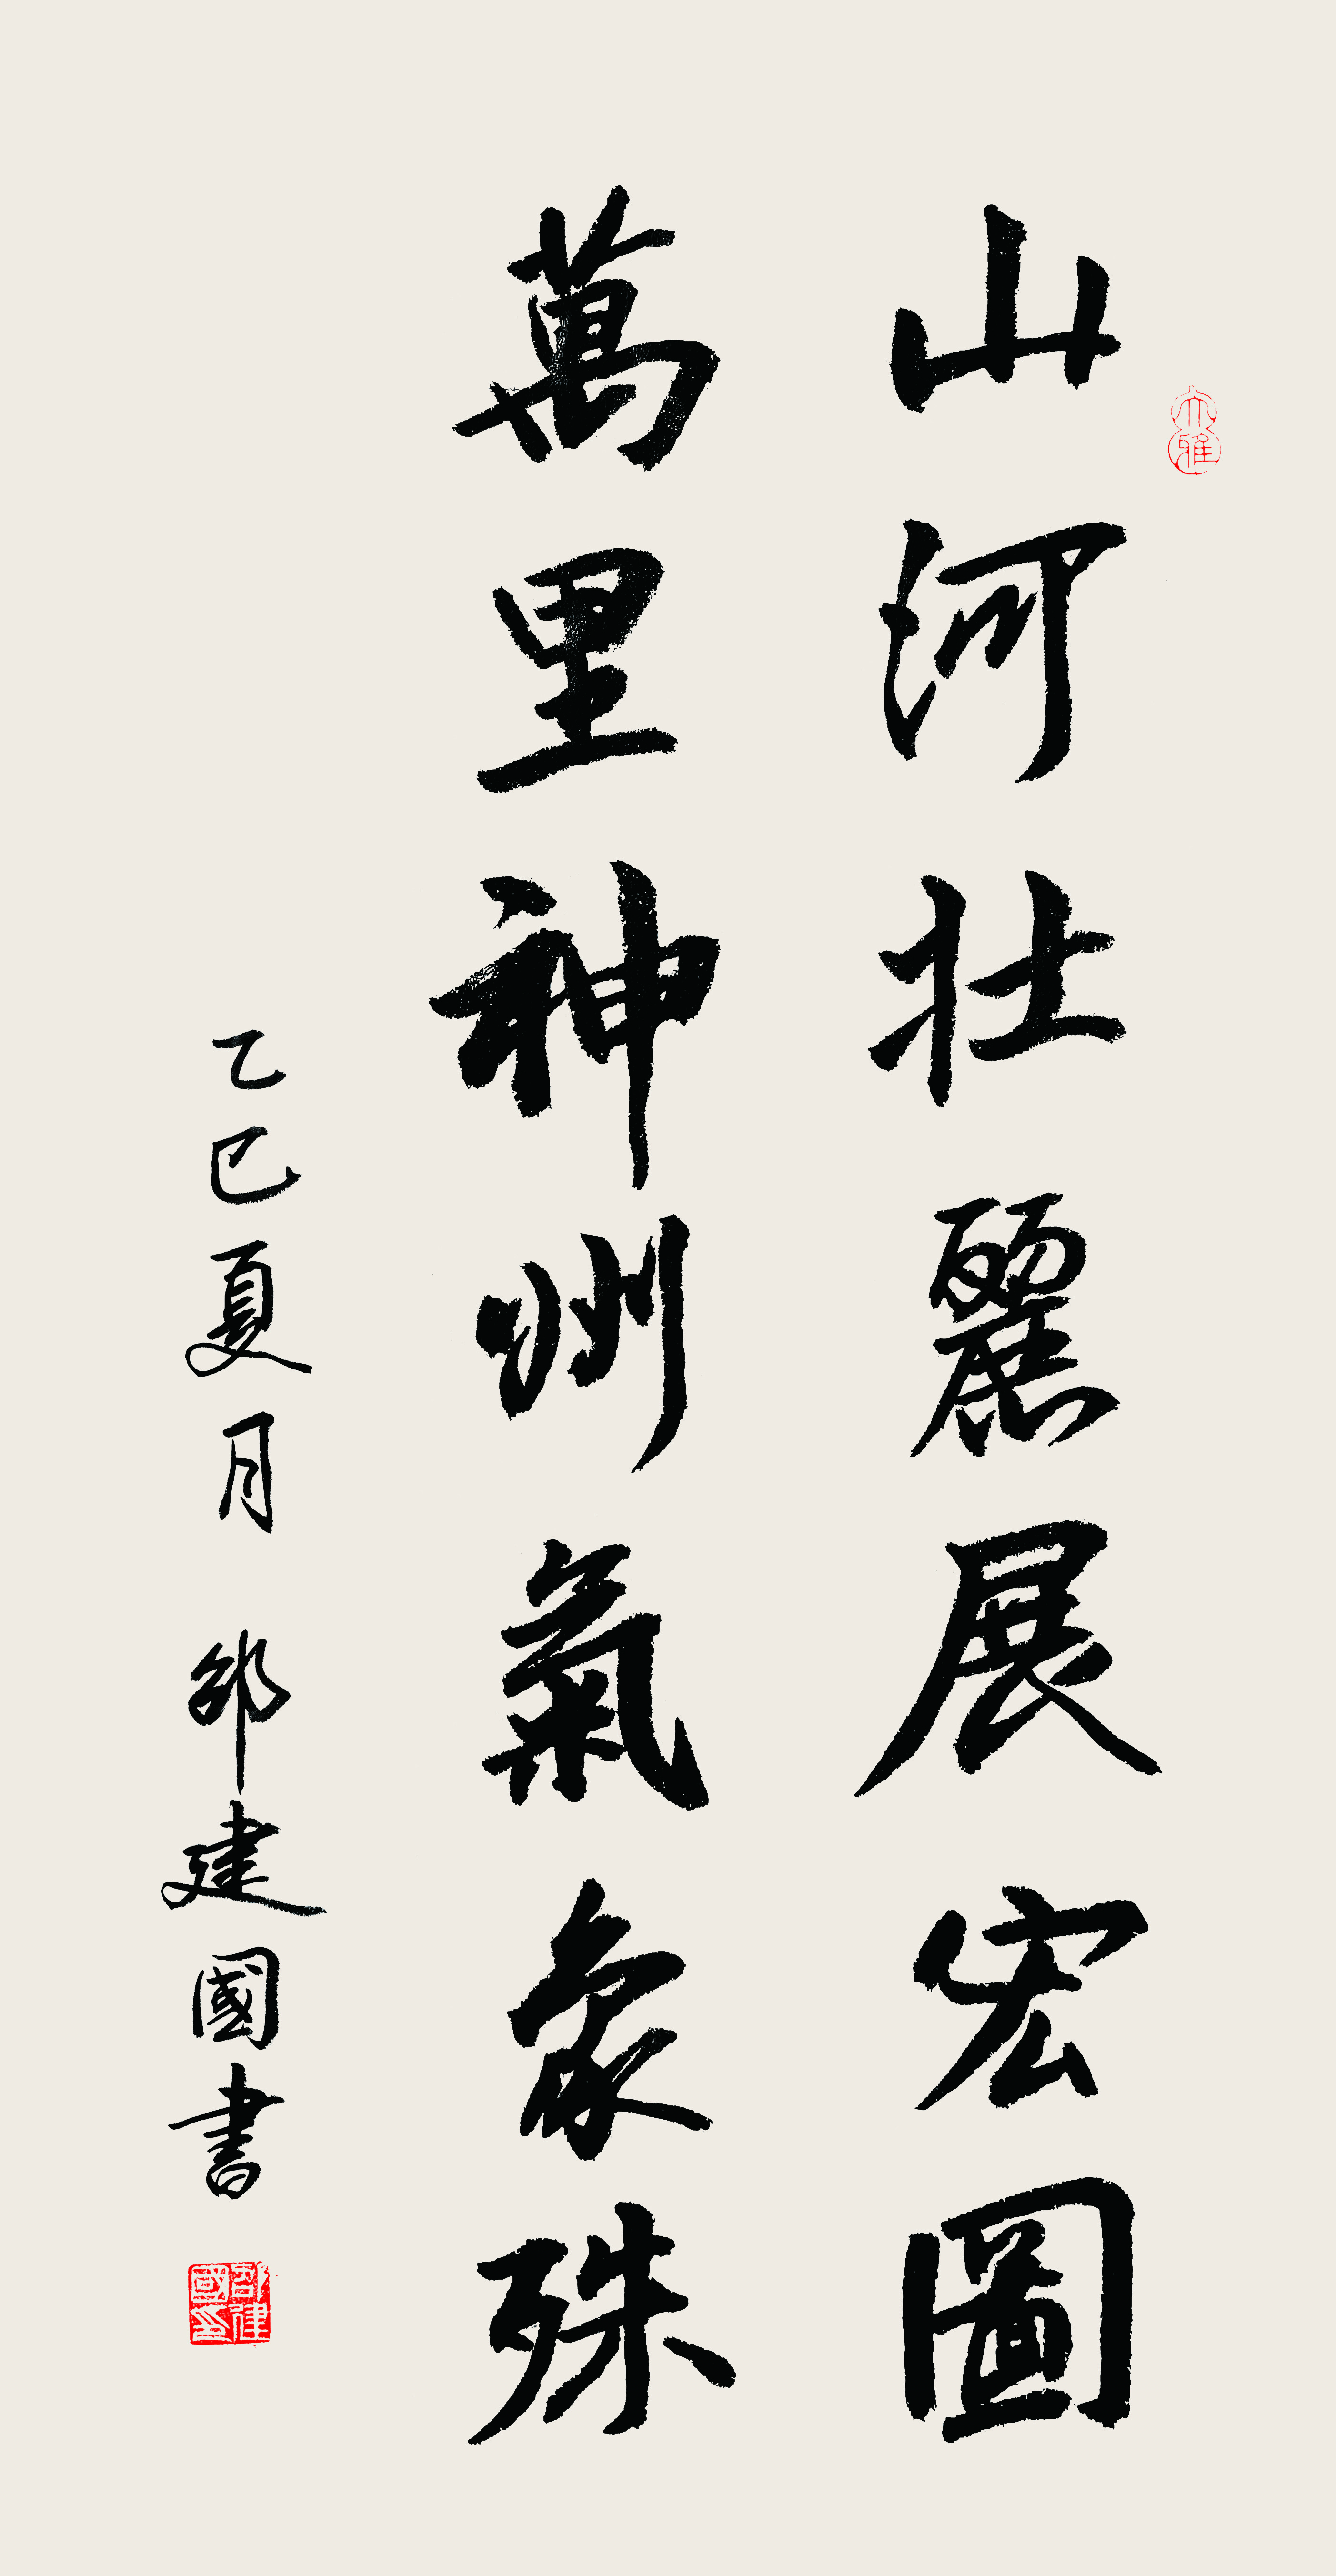 山河壯麗展宏圖
萬里神州氣象殊
乙巳夏月 邵建國書
大雅
邵建國印